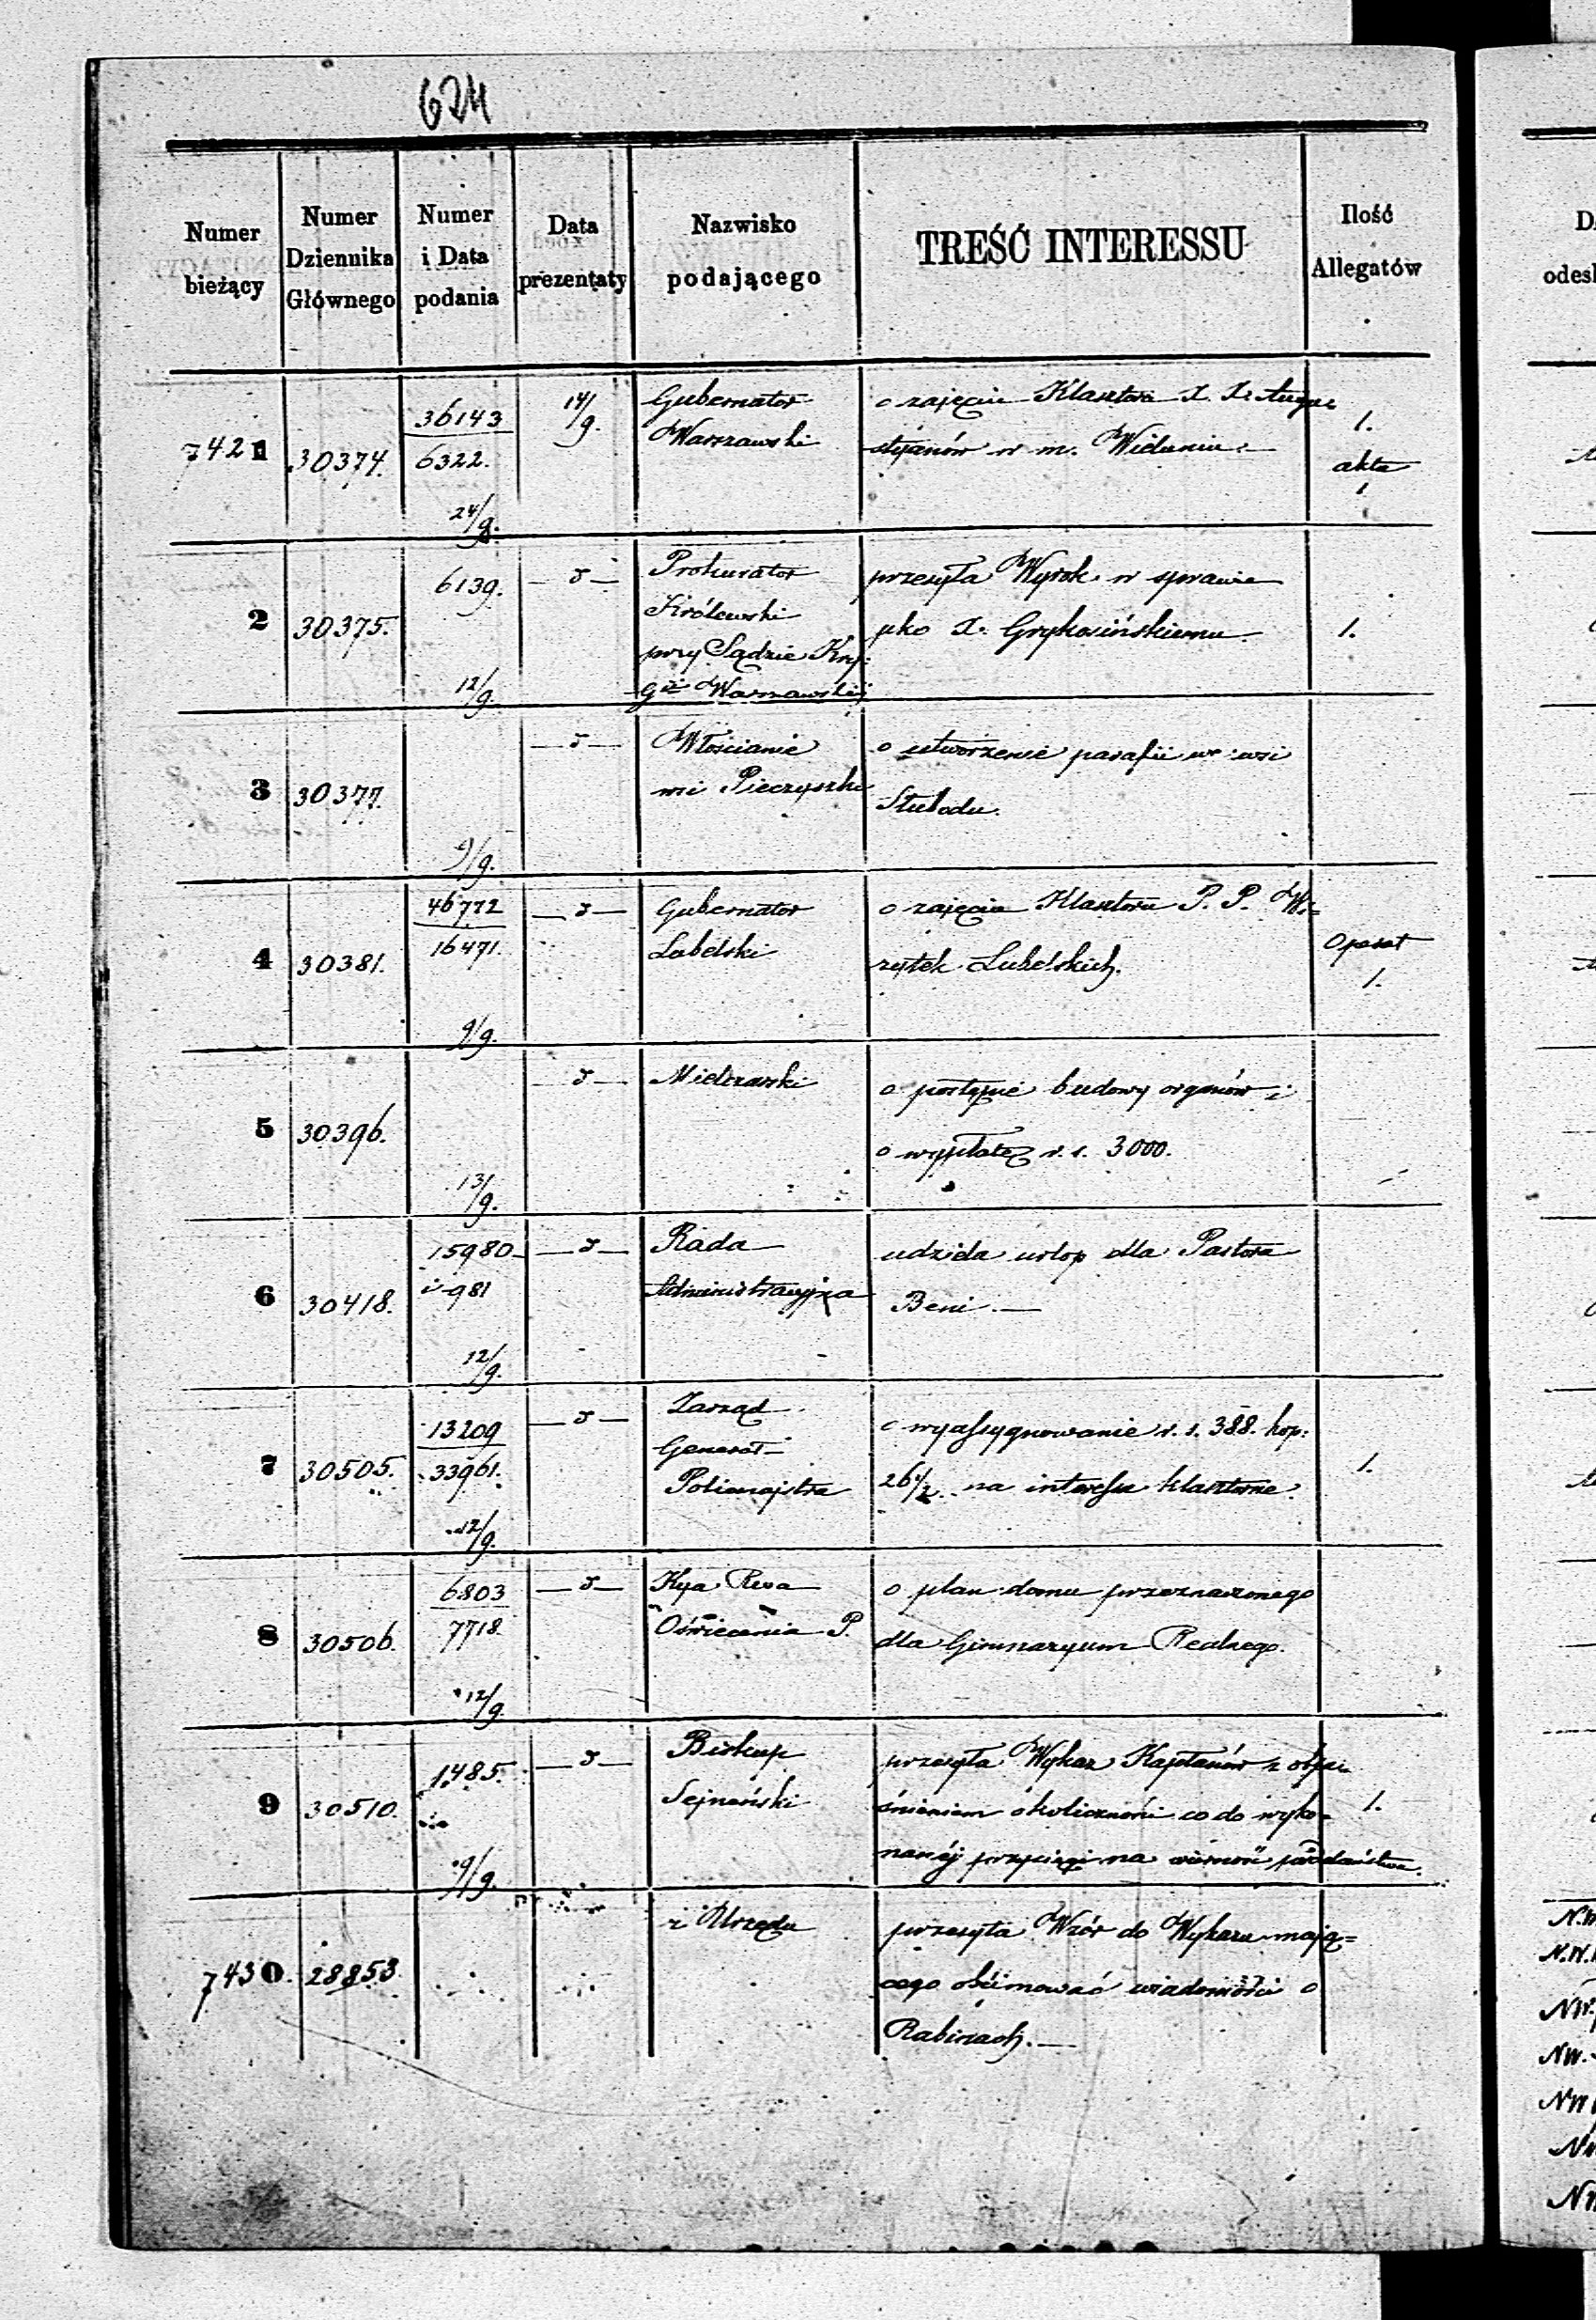 624
Numer bieżący
Numer Dziennika Głównego
Numer i Data podania
Data prezentaty
Nazwisko podającego
TREŚĆ INTERESSU
Ilość Allegatów
7421
30374.
36143
6322.
24/9.
14/9.
Gubernator
Warszawski
o zajęciu Klasztoru X. X. Augu=
styjanów w m. Wieluniu.
1.
akta
1
2
30375.
6139.
12/9.
Prokurator
Królewski
przy Sądzie Kry:
Gii Warszawskiej
przesyła Wyrok w sprawie
pko X. Grykosińskiemu
1.
3
30377.
9/9.
Włościanie
wsi
o utworzenie parafii we wsi
4
30381.
46772
16471.
9/9.
Gubernator
Lubelski
o zajęciu Klasztoru P. P. Wi=
zytek Lubelskich.
Operat
1.
5
30396.
13/9.
o postępie budowy organów i
o wypłatę r. s. 3000.
6
30418.
15980
i 981
12/9.
Rada
Administracyjna
udziela urlop dla Pastora
Beni
7
30505.
13209
33961.
12/9.
Zarząd
Generał
Policmajstra
o wyassygnowanie r. s. 388. kop:
26½ na interessa klasztorne
1.
8
30506.
6803
7718.
12/9.
Kya Rwa
Oświecenia P.
o plan domu przeznaczonego
dla Gimnazyum Realnego.
9
30510.
1485.
9/9.
Biskup
Sejneński
przesyła Wykaz Kapłanów z obja
śnieniem okoliczności co do wyko=
nanéj przysięgi na wierność poddaństwa.
1.
7430.
28853
z Urzędu
przesyła Wzór do Wykazu mają=
cego obéimować wiadomości o
Rabinach.